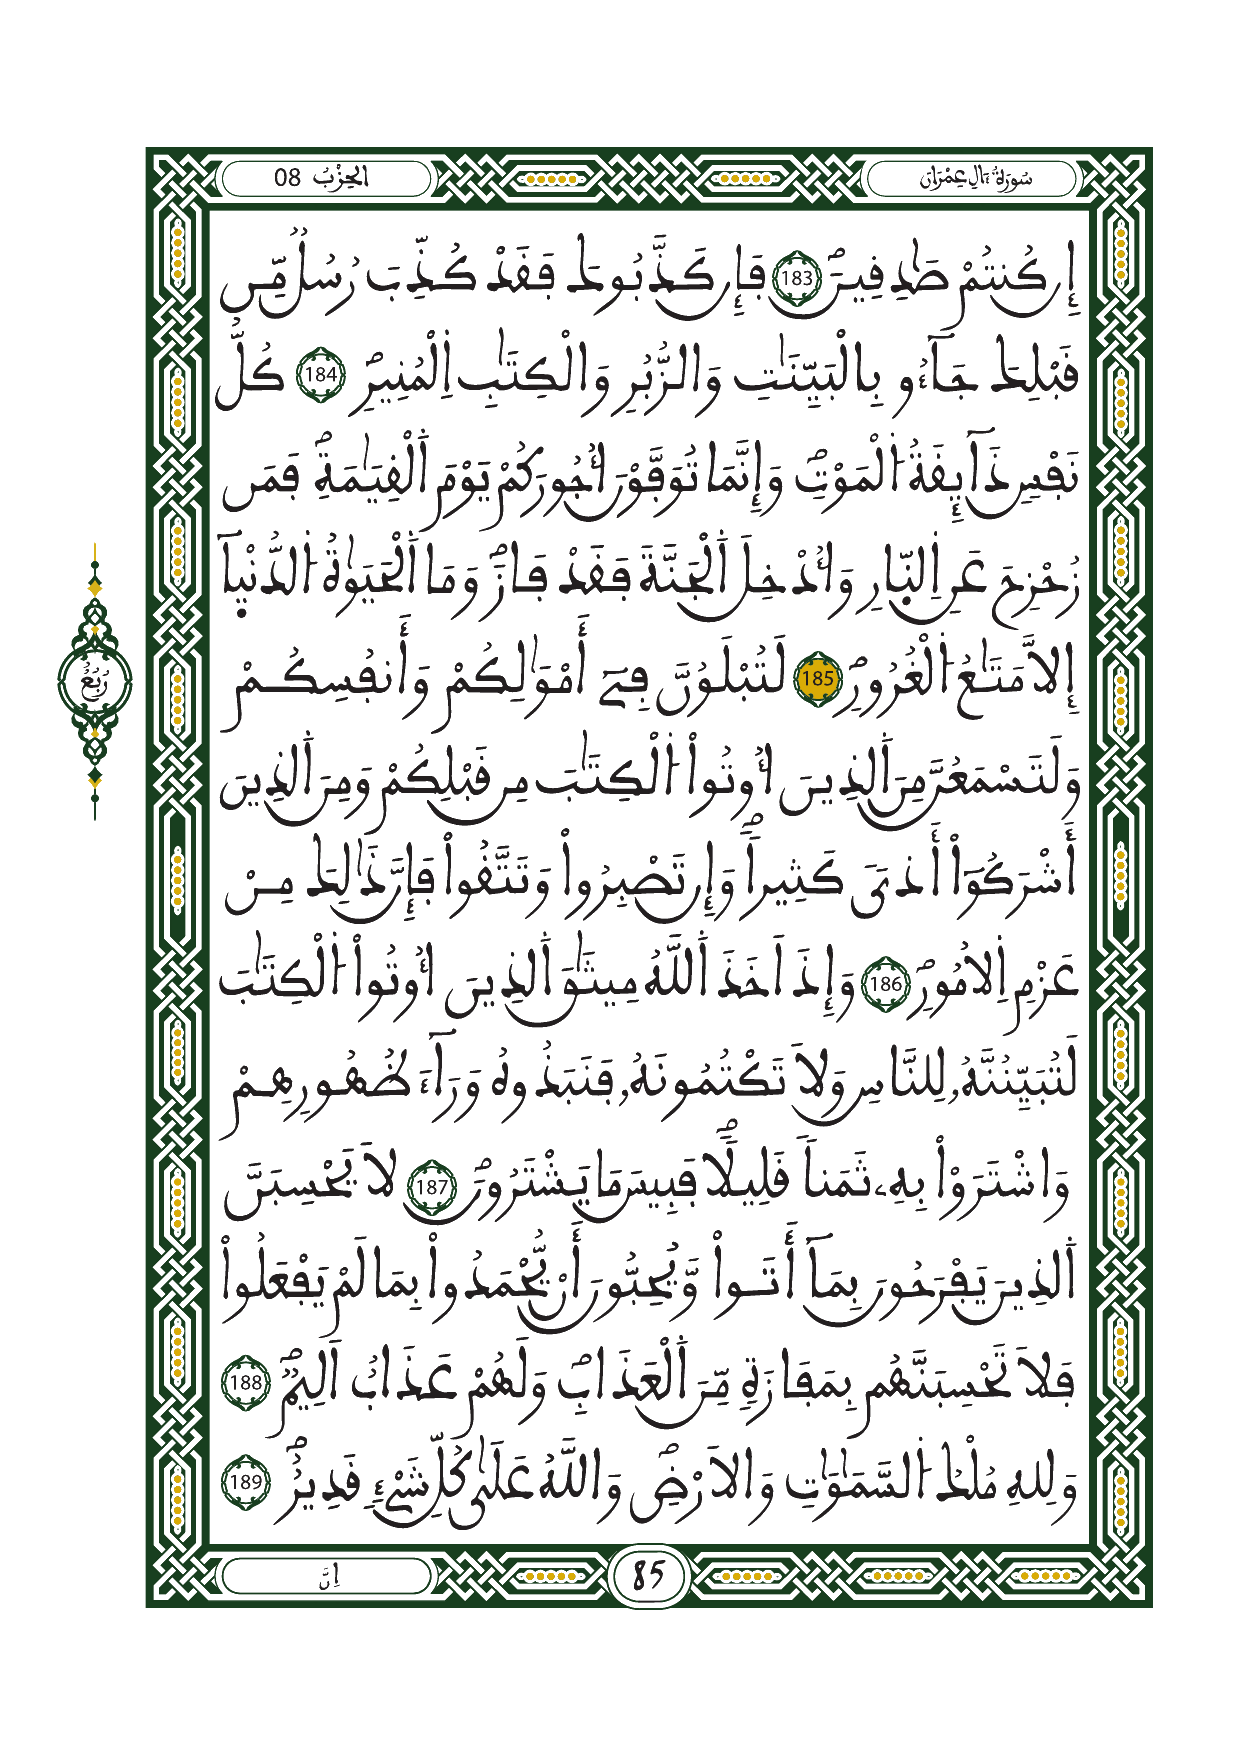 سُورَةُ ءَالِ عِمْرَانَ
الحِزْبُ 08
إِن كُنتُمْ صَٰدِقِينَۖ 183 فَإِن كَذَّبُوكَ فَقَدْ كُذِّبَ رُسُلٞ مِّن
قَبْلِكَ جَآءُو بِالْبَيِّنَٰتِ وَالزُّبُرِ وَالْكِتَٰبِ اِ۬لْمُنِيرِۖ 184 كُلُّ
نَفْسٖ ذَآئِقَةُ اُ۬لْمَوْتِۖ وَإِنَّمَا تُوَفَّوْنَ أُجُورَكُمْ يَوْمَ اَ۬لْقِيَٰمَةِۖ فَمَن
زُحْزِحَ عَنِ اِ۬لنّ۪ارِ وَأُدْخِلَ اَ۬لْجَنَّةَ فَقَدْ فَازَۖ وَمَا اَ۬لْحَيَوٰةُ اُ۬لدُّنْي۪آ
إِلَّا مَتَٰعُ اُ۬لْغُرُورِۖ 185 لَتُبْلَوُنَّ فِےٓ أَمْوَٰلِكُمْ وَأَنفُسِكُمْ
وَلَتَسْمَعُنَّ مِنَ اَ۬لذِينَ أُوتُواْ اُ۬لْكِتَٰبَ مِن قَبْلِكُمْ وَمِنَ اَ۬لذِينَ
أَشْرَكُوٓاْ أَذىٗ كَثِيراٗۖ وَإِن تَصْبِرُواْ وَتَتَّقُواْ فَإِنَّ ذَٰلِكَ مِنْ
عَزْمِ اِ۬لُامُورِۖ 186 وَإِذَ اَخَذَ اَ۬للَّهُ مِيثَٰقَ اَ۬لذِينَ أُوتُواْ اُ۬لْكِتَٰبَ
لَتُبَيِّنُنَّهُۥ لِلنَّاسِ وَلَا تَكْتُمُونَهُۥ فَنَبَذُوهُ وَرَآءَ ظُهُورِهِمْ
وَاشْتَرَوْاْ بِهِۦ ثَمَناٗ قَلِيلاٗۖ فَبِيسَ مَا يَشْتَرُونَۖ 187 لَا يَحْسِبَنَّ
اَ۬لذِينَ يَفْرَحُونَ بِمَآ أَتَواْ وَّيُحِبُّونَ أَنْ يُّحْمَدُواْ بِمَا لَمْ يَفْعَلُواْ
فَلَا تَحْسِبَنَّهُم بِمَفَازَةٖ مِّنَ اَ۬لْعَذَابِۖ وَلَهُمْ عَذَابٌ اَلِيمٞۖ 188
وَلِلهِ مُلْكُ اُ۬لسَّمَٰوَٰتِ وَالَارْضِۖ وَاللَّهُ عَلَىٰ كُلِّ شَےْءٖ قَدِيرٌۖ 189
رُبُعُ
إِنَّ
85